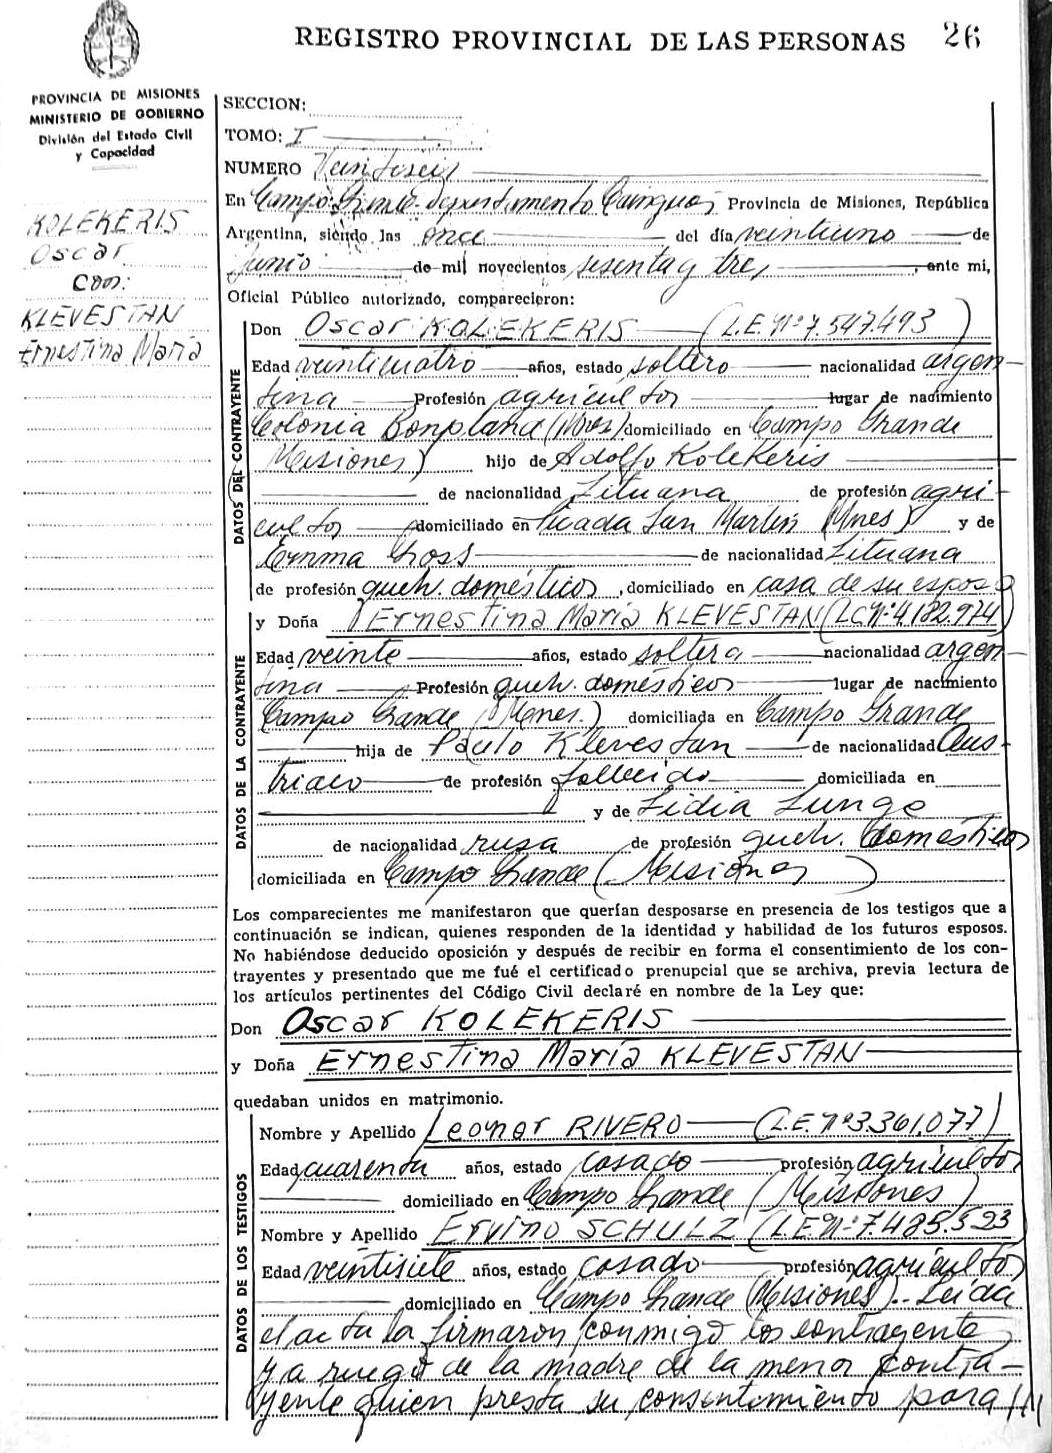 REGISTRO PROVINCIAL DE LAS PERSONAS 26
PROVINCIA DE MISIONES
MINISTERIO DE GOBIERNO
División del Estado Civil
y Capacidad
KOLEKERIS
Oscar
con:
KLEVESTAN
Ernestina María
SECCION:
TOMO: I
NUMERO Veintiseis
En Campo Grande departamento Cainguás Provincia de Misiones, República
Argentina, siendo las once del día veintiuno de
Junio de mil novecientos sesenta y tres, ante mi,
Oficial Público autorizado, comparecieron:
DATOS DEL CONTRAYENTE
Don Oscar KOLEKERIS (L.E.Nº 7.547.493)
Edad veinticuatro años, estado soltero nacionalidad argen-
tina Profesión agricultor lugar de nacimiento
Colonia Bonpland (Mnes) domiciliado en Campo Grande
Misiones) hijo de Adolfo Kolekeris
de nacionalidad Lituana de profesión agri-
cultor domiciliado en Picada San Martín (Mnes) y de
Emma Gross de nacionalidad Lituana
de profesión queh. domésticos, domiciliado en casa de su esposo
DATOS DE LA CONTRAYENTE
y Doña Ernestina María KLEVESTAN (LC Nº 4.182.974)
Edad veinte años, estado soltera nacionalidad argen-
tina Profesión queh. domésticos lugar de nacimiento
Campo Grande (Mnes.) domiciliada en Campo Grande
hija de Paulo Klevestan de nacionalidad Aus-
triaco de profesión fallecido domiciliada en
y de Lidia Lunge
de nacionalidad rusa de profesión queh. domésticos
domiciliada en Campo Grande (Misiones)
Los comparecientes me manifestaron que querían desposarse en presencia de los testigos que a
continuación se indican, quienes responden de la identidad y habilidad de los futuros esposos.
No habiéndose deducido oposición y después de recibir en forma el consentimiento de los con-
trayentes y presentado que me fué el certificado prenupcial que se archiva, previa lectura de
los artículos pertinentes del Código Civil declaré en nombre de la Ley que:
Don Oscar KOLEKERIS
y Doña Ernestina María KLEVESTAN
quedaban unidos en matrimonio.
DATOS DE LOS TESTIGOS
Nombre y Apellido Leonor RIVERO (L.E. Nº 3.361.077)
Edad cuarenta años, estado casado profesión agricultor
domiciliado en Campo Grande (Misiones)
Nombre y Apellido Ervino SCHULZ (L.E Nº 7.485.593
Edad veintisiete años, estado casado profesión agricultor
domiciliado en Campo Grande (Misiones).- Leída
el acta la firmaron conmigo los contrayentes
y a ruego de la madre de la menor contra-
yente quien presta su consentimiento para ///